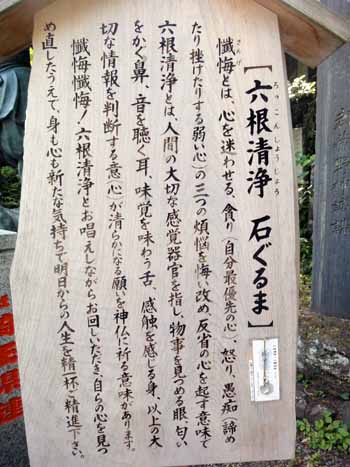 ［六根清浄　石ぐるま］
ろっこんしょうじょう
さんげ
懺悔とは、心を迷わせる、貪り（自分最優先の心）、怒り、愚痴（諦め
たり挫けたりする弱い心）の三つの煩悩を悔い改め、反省の心を起す意味で
六根清浄とは、人間の大切な感覚器官を指し、物事を見つめる眼、匂い
をかぐ鼻、音を聴く耳、味覚を味わう舌、感触を感じる身、以上の大
切な情報を判断する意（心）が清らかになる願いを神仏に祈る意味があります。
懺悔懺悔！六根清浄とお唱えしながらお回しいただき、自らの心を見つ
め直したうえで、身も心も新たな気持ちで明日からの人生を精一杯ご精進下さい。